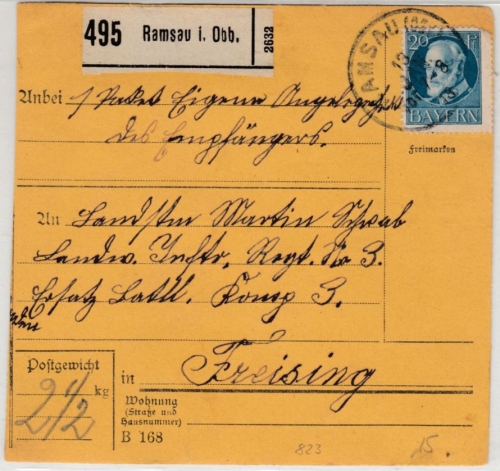 495 Ramsau i. Obb. 2632
RAMSAU
20 Pf
BAYERN
Freimarken
Anbei 1 Paket Eigene Angelegenheit
des Empfängers.
An Landstm Martin Schwab
Landw. Inftr. Regt. No 3.
Ersatz Batl. Komp 3.
Postgewicht
2 1/2 kg
in Freising
Wohnung
(Straße und
Hausnummer)
B 168
823
15.